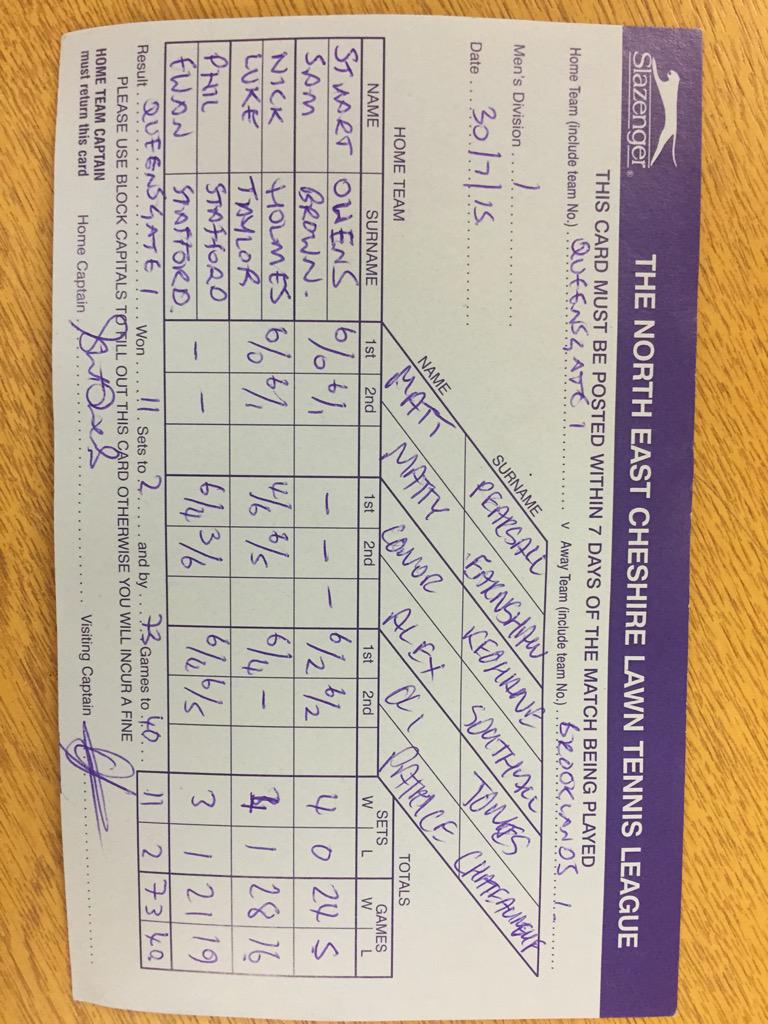 Slazenger®
THE NORTH EAST CHESHIRE LAWN TENNIS LEAGUE
THIS CARD MUST BE POSTED WITHIN 7 DAYS OF THE MATCH BEING PLAYED
Home Team (include team No.) QUEENSGATE 1 v Away Team (include team No.) BROOKLANDS 1
Men's Division 1
Date 30/7/15
HOME TEAM
NAME SURNAME
MATT PEARSALL
MATTY EARNSHAW
CONOR KEOHANE
ALEX SOUTHALL
OLI JONES
PATRICE
TOTALS
NAME SURNAME 1st 2nd 1st 2nd 1st 2nd SETS W L GAMES W L
STUART OWENS
SAM BROWN.
6/0 6/1 - - - 6/2 6/2 4 0 24 5
NICK HOLMES
LUKE TAYLOR
6/0 6/1 4/6 6/5 6/4 - 4 1 28 16
PHIL STAFFORD
EWAN STAFFORD.
- - 6/4 3/6 6/4 6/5 3 1 21 19
Result QUEENSGATE 1 Won 11 Sets to 2 and by 73 Games to 40
11 2 73 40
PLEASE USE BLOCK CAPITALS TO FILL OUT THIS CARD OTHERWISE YOU WILL INCUR A FINE
HOME TEAM CAPTAIN
must return this card
Home Captain Visiting Captain